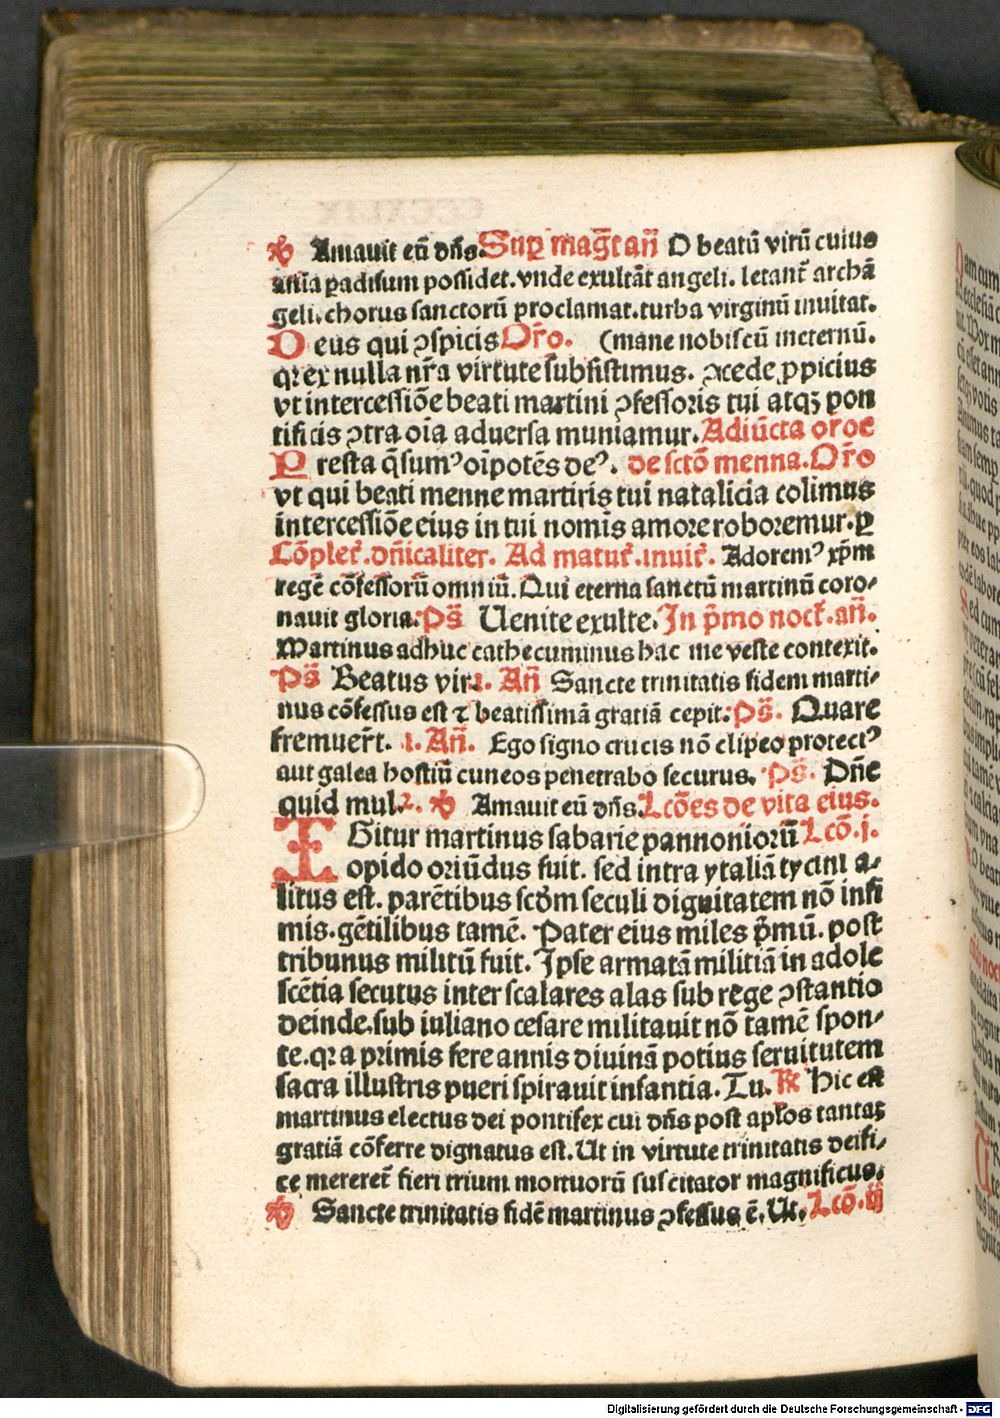 ℣ Amauit eū dn̄s. Suꝑ mag̅t an̄ O beatū virū cuius
aīa ꝑadisum possidet. vnde exultāt angeli. letant᷑ archā
geli. chorus sanctorū proclamat. turba virginū inuitat.
Deus qui ꝯspicis Or̄o. (mane nobiscū ineternū.
qꝛ ex nulla nr̄a virtute subsistimus. ꝯcede ꝓpicius
vt intercessiōe beati martini ꝯfessoris tui atqꝫ pon
tificis ꝯtra oīa aduersa muniamur. Adiūcta or̄oe
Presta q̄sumꝰ oīpotēs deꝰ. de sctō menna. Or̄o
vt qui beati menne martiris tui natalicia colimus
intercessiōe eius in tui nomīs amore roboremur. ꝑ
Cōplet᷑. dn̄icaliter. Ad matut᷑. inuit᷑. Adoremꝰ xp̄m
regē cōfessorū omniū. Qui eterna sanctū martinū coro⸗
nauit gloria: Ps̄ Uenite exulte. In p̄mo noct᷑. an̄.
Martinus adhuc cathecuminus hac me veste contexit.
Ps̄ Beatus vir. 1. An̄ Sancte trinitatis fidem marti⸗
nus cōfessus est ⁊ beatissimā gratiā cepit: Ps̄. Quare
fremuer̄t. 1. An̄. Ego signo crucis nō clipeo protectꝰ
aut galea hostiū cuneos penetrabo securus. Ps̄. Dn̄e
quid mul. 2. ℣ Amauit eū dn̄s. Lcōes de vita eius.
IGitur martinus sabarie pannoniorū Lcō. j.
opido oriūdus fuit. sed intra ytaliā tycini a⸗
litus est. parētibus scd̄m seculi dignitatem nō infi
mis. gētilibus tamē. Pater eius miles p̄mū. post
tribunus militū fuit. Ipse armatā militiā in adole
scētia secutus inter scalares alas sub rege ꝯstantio
deinde. sub iuliano cesare militauit nō tamē spon⸗
te. qꝛ a primis fere annis diuinā potius seruitutem
sacra illustris pueri spirauit infantia. Tu. ℟ Hic est
martinus electus dei pontifex cui dn̄s post apl̄os tantaꝫ
gratiā cōferre dignatus est. Ut in virtute trinitatis deifi⸗
ce mereret᷑ fieri trium mortuorū suscitator magnificus.
℣ Sancte trinitatis fidē martinus ꝯfessus ē. Ut. Lcō. ij
Digitalisierung gefördert durch die Deutsche Forschungsgemeinschaft - DFG